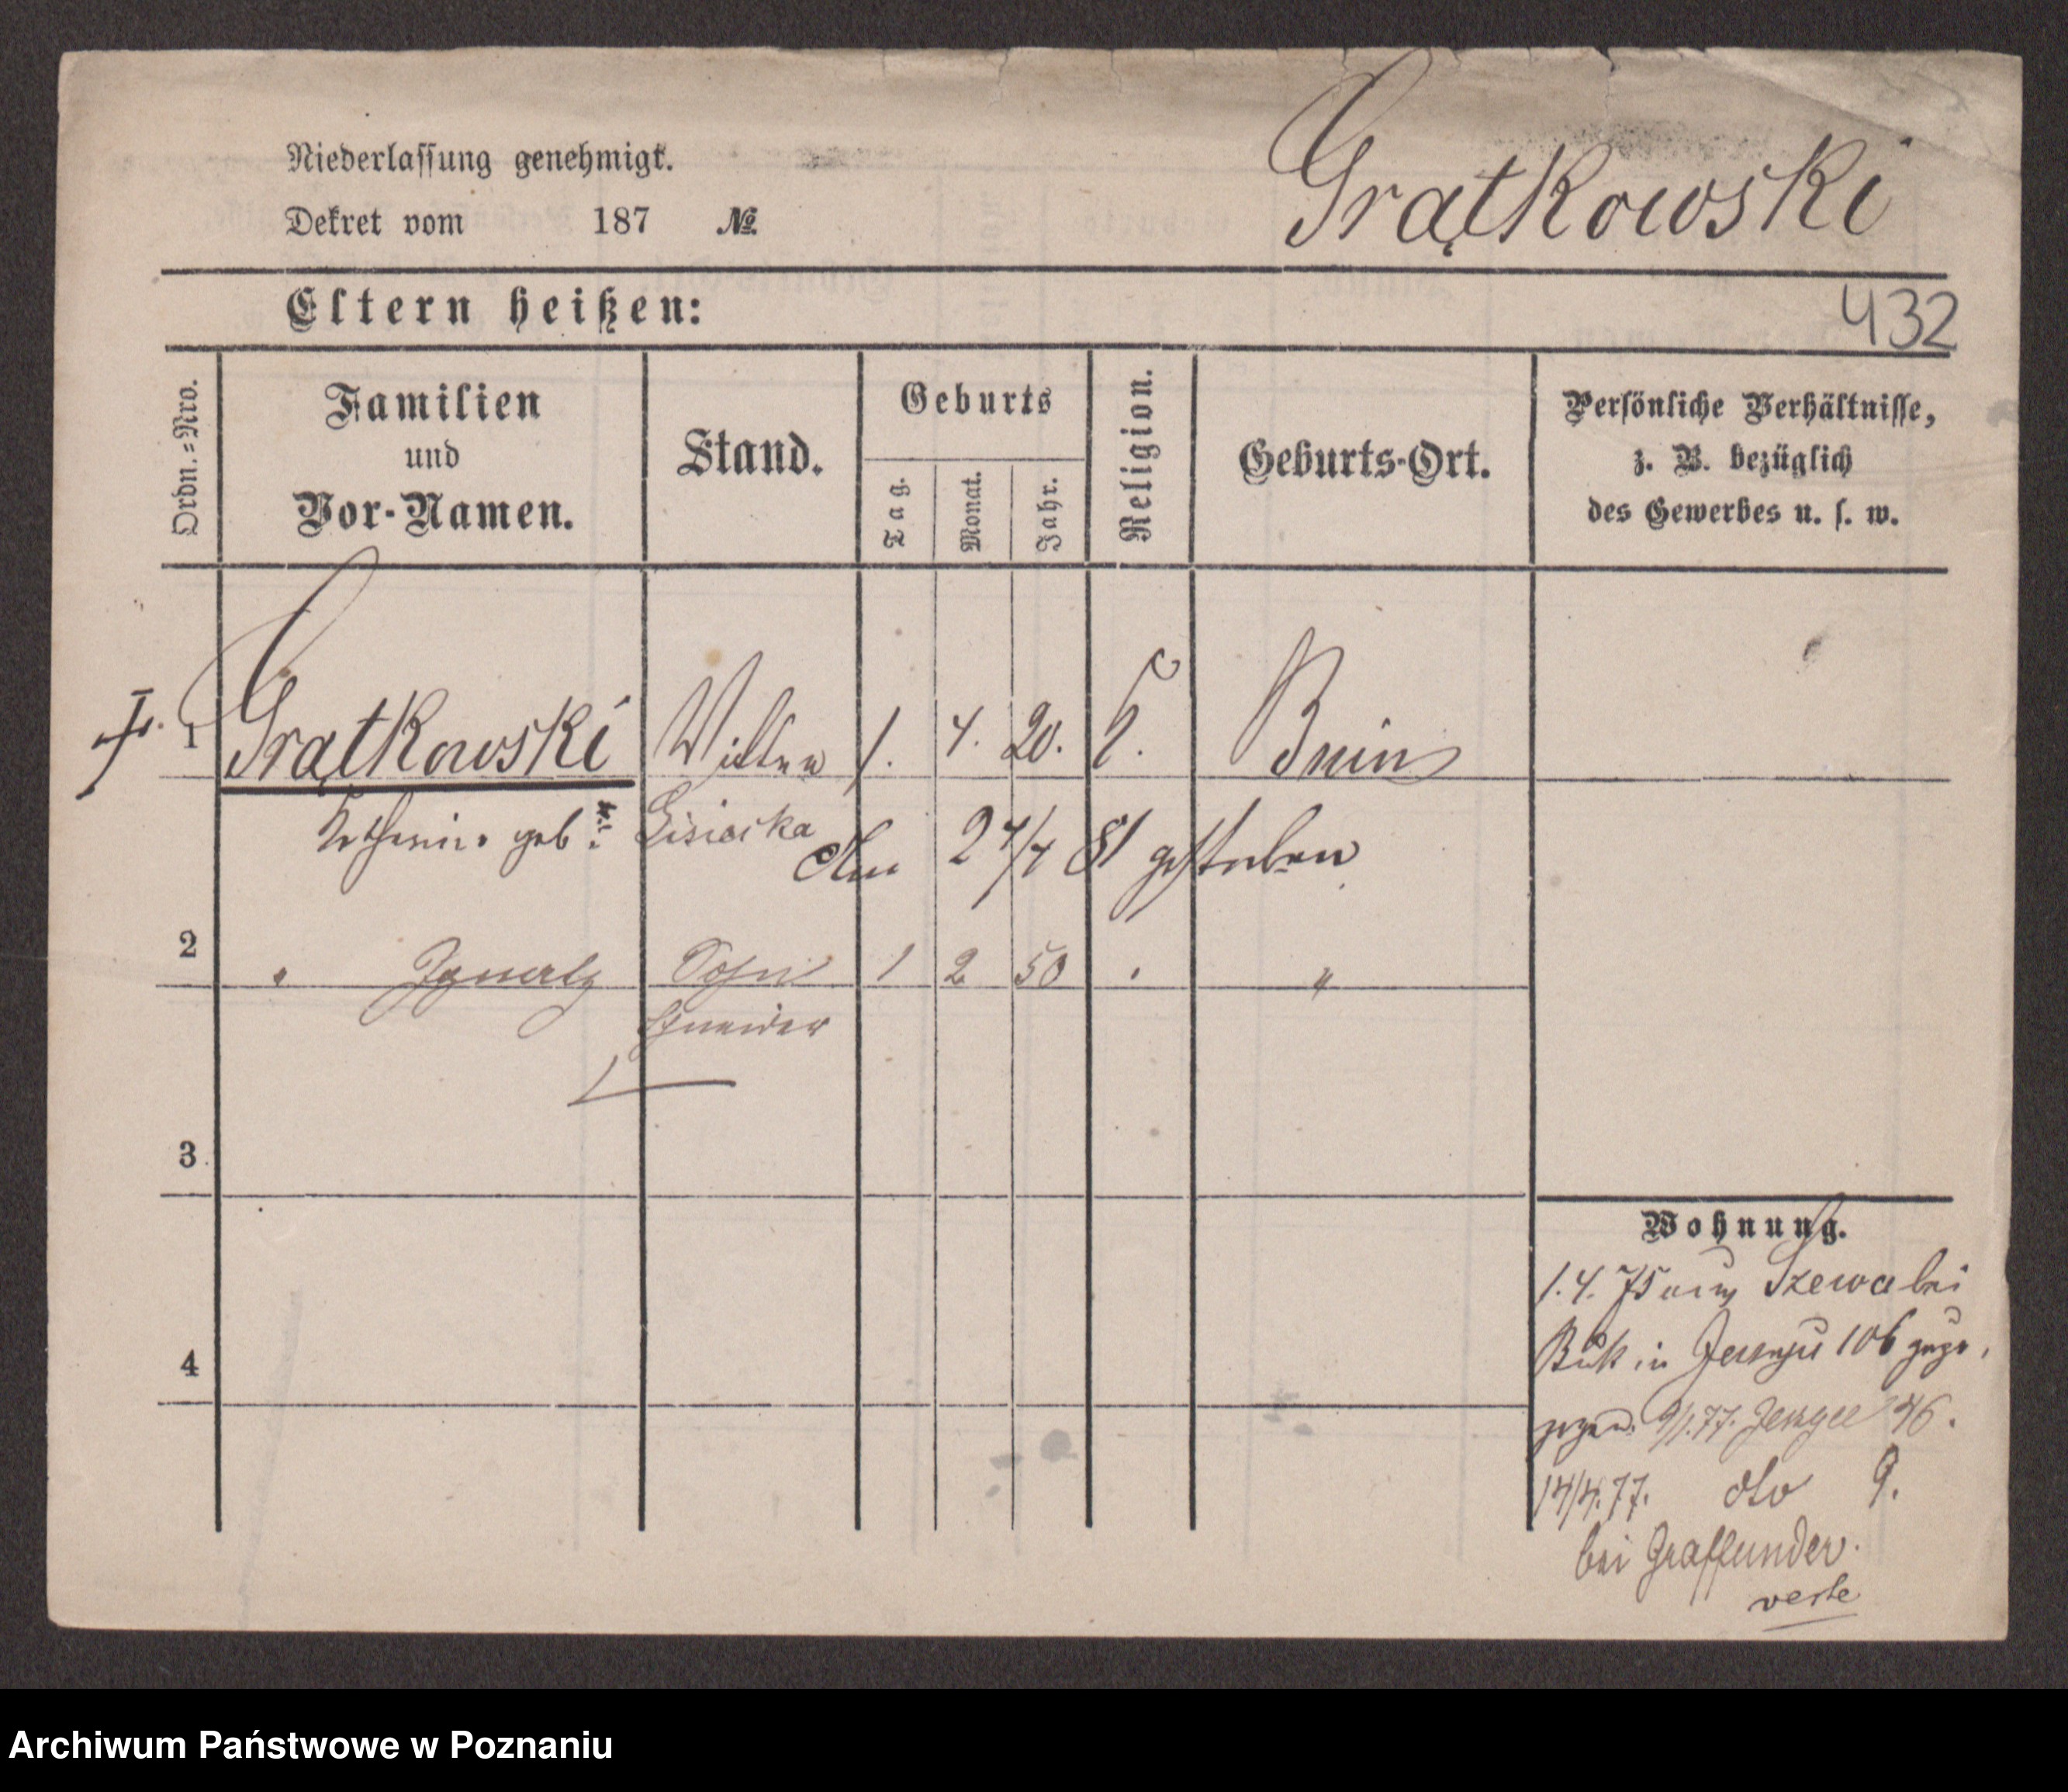 Niederlassung genehmigt.
Dekret vom 187 №
Grątkowski
Eltern heißen:
432
Ordn.=Nro.
Familien
und
Vor-Namen.
Stand.
Geburts
Tag.
Monat.
Jahr.
Religion.
Geburts-Ort.
Persönliche Verhältnisse,
z. B. bezüglich
des Gewerbes u. s. w.
1 Grątkowski Wittwe 1. 4. 20. k. Bnin
geb.
27/4 81 gestorben
2 " Ignatz Sohn 1 2 50 " "
Schneider
3
4
Wohnung.
1.4.75 aus Szewce bei
Buk in Jersyce 106 zugz.
9/1.77. Jerzyce 46.
14/4.77. dto 9.
bei Graffunder.
Archiwum Państwowe w Poznaniu